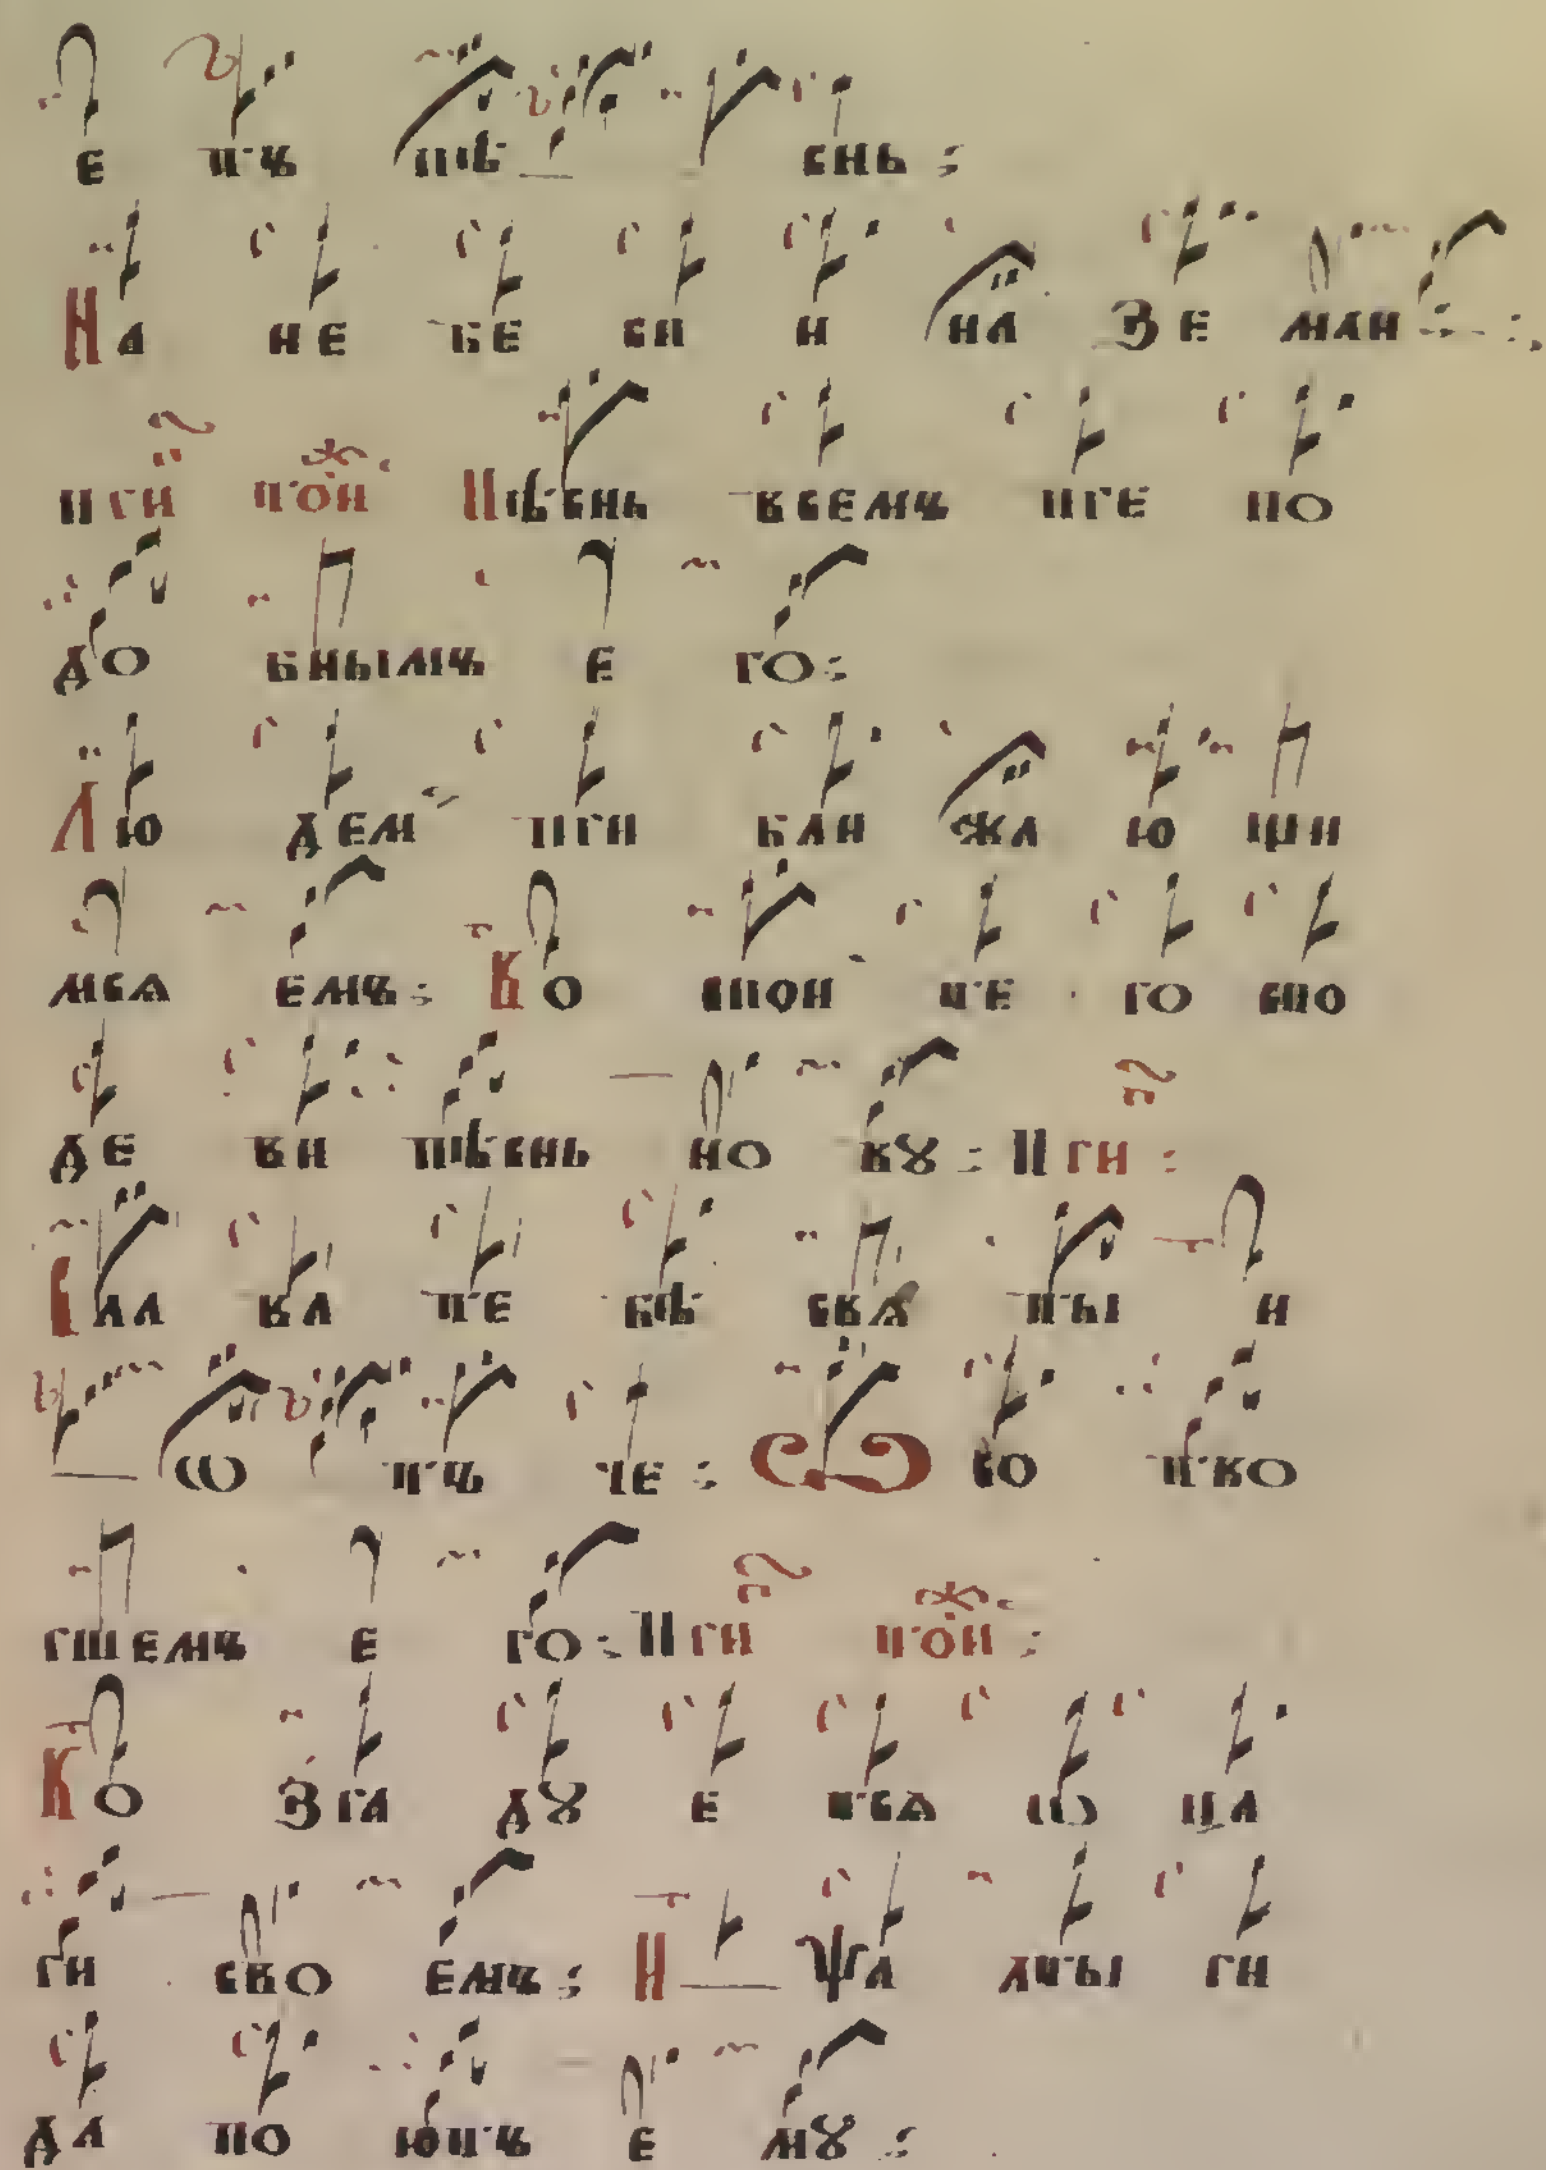 Е тъ пѣ снь:
На не бе си и на зе мли
п ри п ои Пѣснь всемъ пре по
до бнымъ е го:
Лю дем при бли жа ю щи
мся емъ: Во спои те го спо
де ви пѣснь но ву: При:
Хва ла те бѣ свя ты и
ѿ тъ че: Ѿ со тво
ршемъ е го: При пои:
Во зра ду е тся ѡ ца
ри сво емъ: И ѱа лты ри
да по ютъ е му: